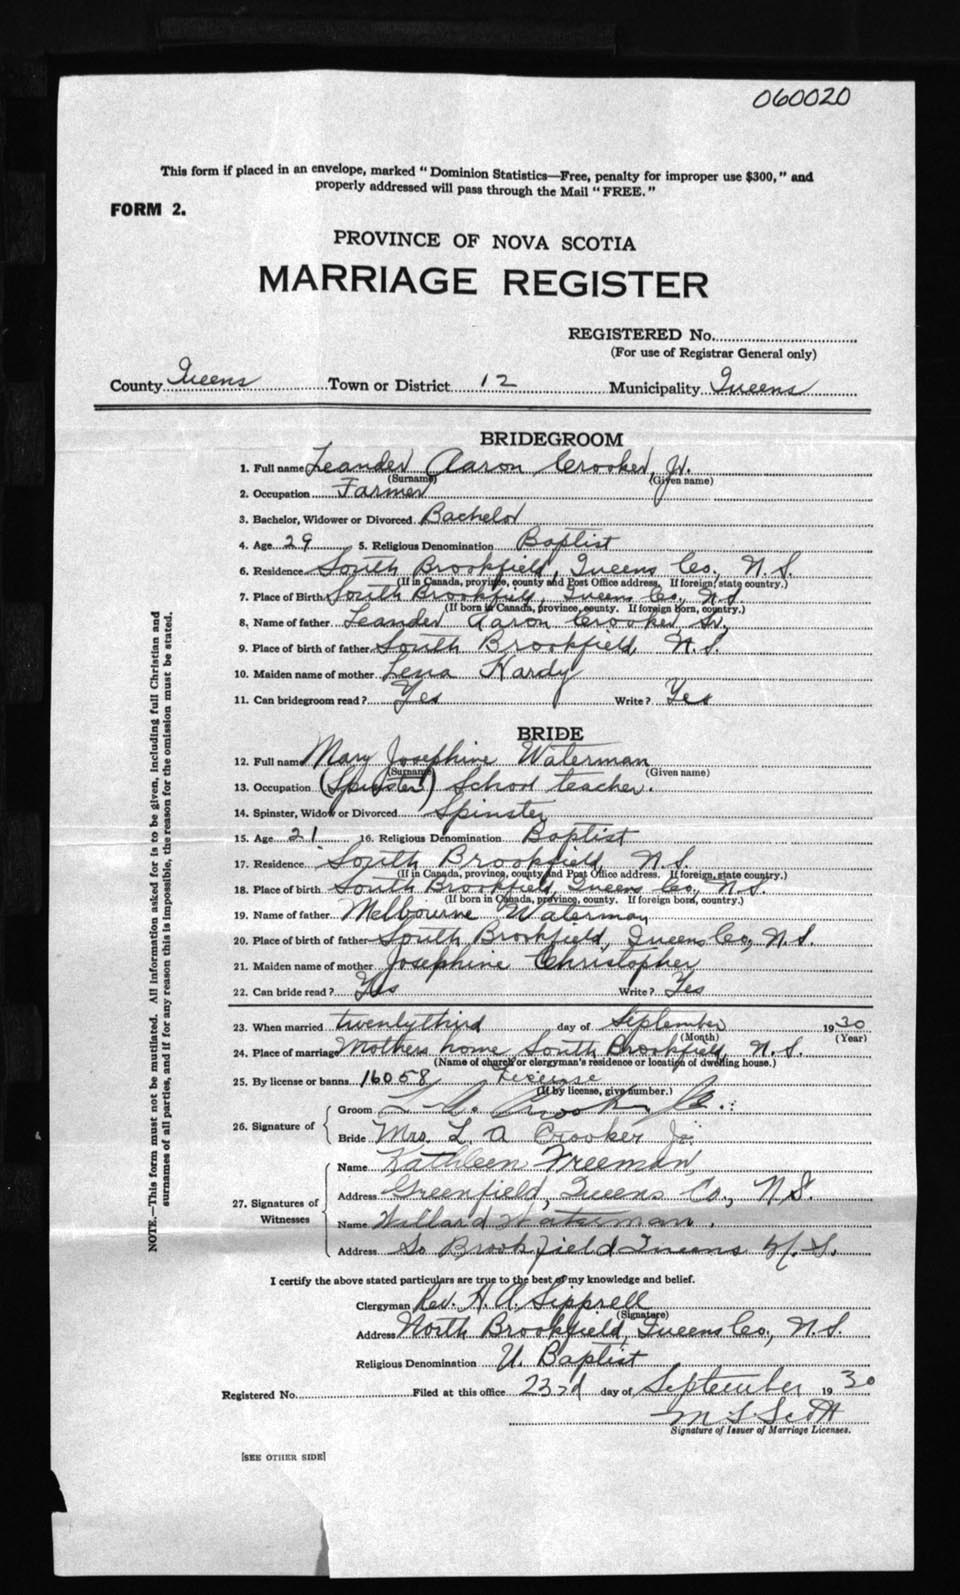 060020
This form if placed in an envelope, marked "Dominion Statistics—Free, penalty for improper use $300," and
properly addressed will pass through the Mail "FREE."
FORM 2.
PROVINCE OF NOVA SCOTIA
MARRIAGE REGISTER
REGISTERED No.
(For use of Registrar General only)
County Queens Town or District 12 Municipality Queens
BRIDEGROOM
1. Full name Leander Aaron Crooker, Jr.
(Surname) (Given name)
2. Occupation Farmer
3. Bachelor, Widower or Divorced Bachelor
4. Age 29 5. Religious Denomination Baptist
6. Residence South Brookfield, Queens Co., N.S.
(If in Canada, province, county and Post Office address. If foreign, state country.)
7. Place of Birth South Brookfield, Queens Co., N.S.
(If born in Canada, province, county. If foreign born, country.)
8. Name of father Leander Aaron Crooker, Sr.,
9. Place of birth of father South Brookfield, N.S.
10. Maiden name of mother Lena Hardy
11. Can bridegroom read? Yes Write? Yes
BRIDE
12. Full name Mary Josephine Waterman
(Surname) (Given name)
13. Occupation (Spinster) School teacher.
14. Spinster, Widow or Divorced Spinster
15. Age 21. 16. Religious Denomination Baptist
17. Residence South Brookfield, N.S.
(If in Canada, province, county and Post Office address. If foreign, state country.)
18. Place of birth South Brookfield, Queens Co., N.S.
(If born in Canada, province, county. If foreign born, country.)
19. Name of father Melbourne Waterman
20. Place of birth of father South Brookfield, Queens Co., N.S.
21. Maiden name of mother Josephine Christopher
22. Can bride read? Yes Write? Yes
23. When married twenty third day of September 1930
(Month) (Year)
24. Place of marriage Mothers home South Brookfield, N.S.
(Name of church or clergyman's residence or location of dwelling house.)
25. By license or banns 16058 License
(If by license, give number.)
26. Signature of
Groom L. A. Crooker Jr.
Bride Mrs. L. A Crooker Jr.
27. Signatures of Witnesses
Name Kathleen Freeman
Address Greenfield, Queens Co., N.S.
Name Willard Waterman.
Address So Brookfield Queens N.S.
I certify the above stated particulars are true to the best of my knowledge and belief.
Clergyman Rev. H. A. Sipprell
(Signature)
Address North Brookfield, Queens Co., N.S.
Religious Denomination U. Baptist
Registered No. Filed at this office 23rd day of September 1930
M L Scott
Signature of Issuer of Marriage Licenses.
[SEE OTHER SIDE]
NOTE.—This form must not be mutilated. All information asked for is to be given, including full Christian and
surnames of all parties, and if for any reason this is impossible, the reason for the omission must be stated.